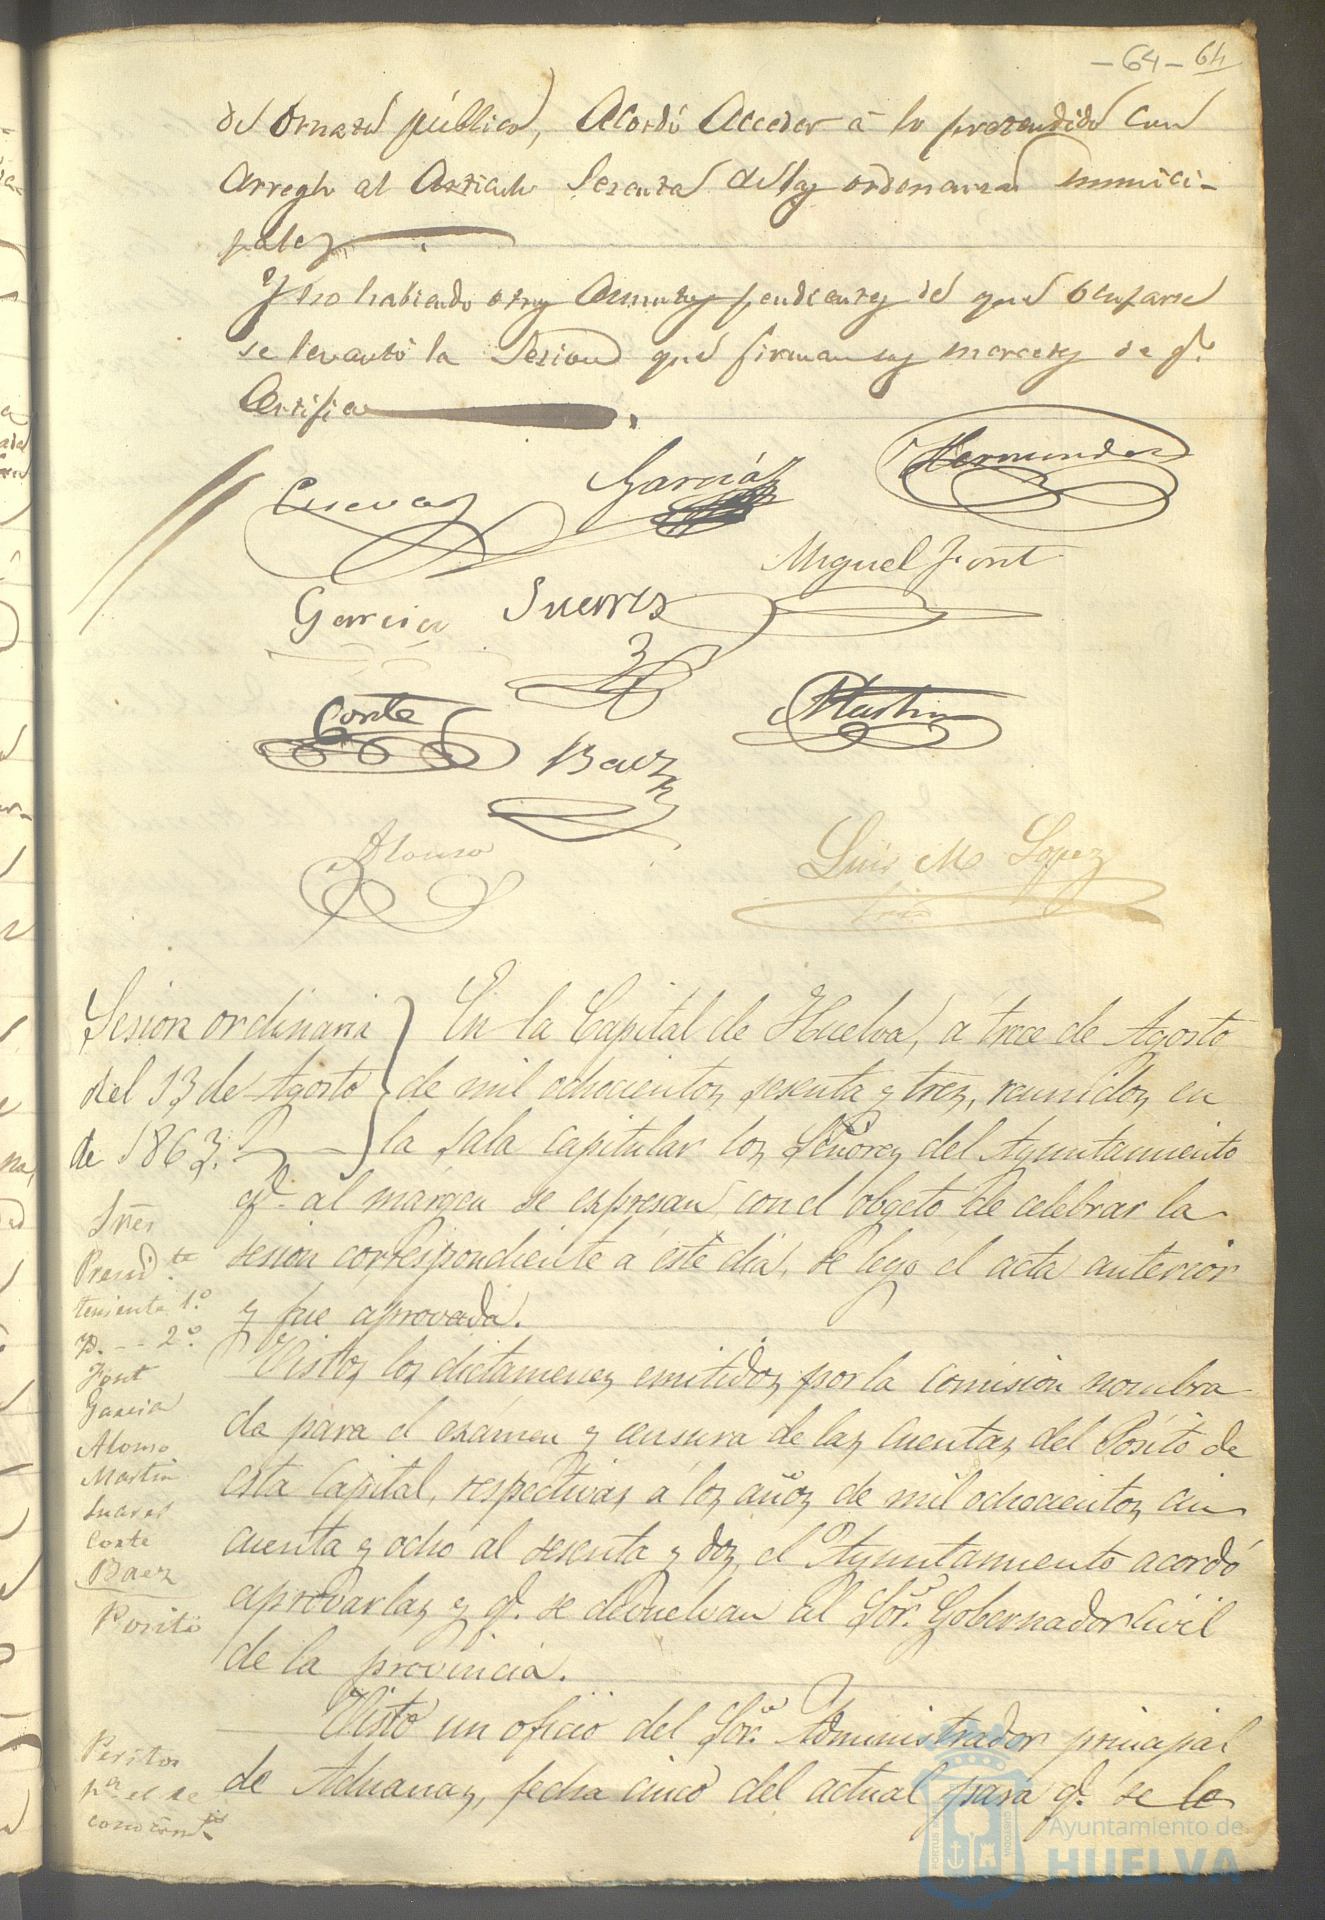 - 64 - 64
de ornato público, Acordó Acceder á lo pretendido con
Arreglo al Articulo Sesenta de las ordenanzas munici-
pales.
Y no habiendo otros Asuntos pendientes de que ocuparse
se levantó la Sesion que firman sus mercedes de q.e
Certifico.
Cuevas
Garcia
Hernandez
Miguel Font
Garcia
Suarez
Conte
Martin
Baez
Alonso
Luis M Lopez
Srio
Sesion ordinaria
del 13 de Agosto
de 1863.
En la Capital de Huelva, á trece de Agosto
de mil ochocientos sesenta y tres, reunidos en
la sala capitular los Señores del Ayuntamiento
q.e al margen se expresan con el obgeto de celebrar la
sesion correspondiente á este dia, se leyó el acta anterior
y fue aprovada.
Sres
Presid.te
teniente 1.º
Yd. - - 2.º
Font
Garcia
Alonso
Martin
Suares
Conte
Baez
Vistos los dictamenes emitidos por la comision nombra
da para el examen y censura de las cuentas del Posito de
esta Capital, respectivas á los años de mil ochocientos cin
cuenta y ocho al sesenta y dos, el Ayuntamiento acordó
aprovarlas y q.e se devuelvan al Sor. Gobernador Civil
de la provincia.
Posito
Visto un oficio del Sor. Administrador principal
de Aduanas, fecha cinco del actual para q.e se le
Peritos
p.a el re
conocim.to
Ayuntamiento de
HUELVA